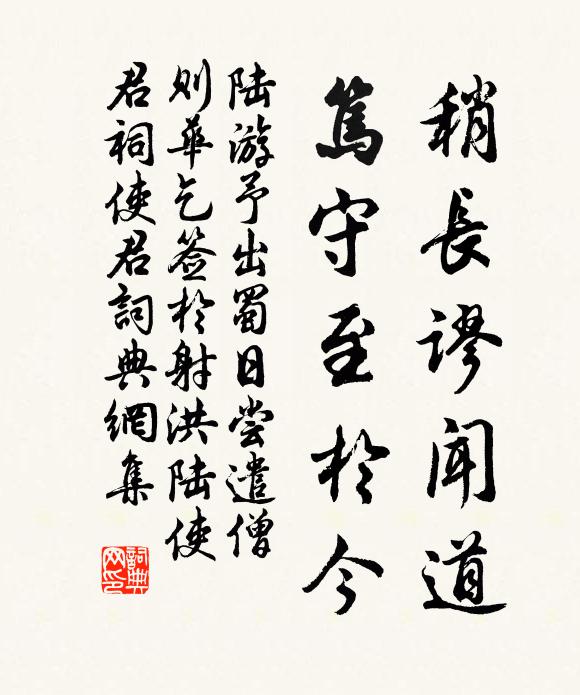 稍長謬闻道
篤守至於今
陆游予出蜀日尝遣僧
则華乞签於射洪陆使
君祠使君詞典網集
詞典网印